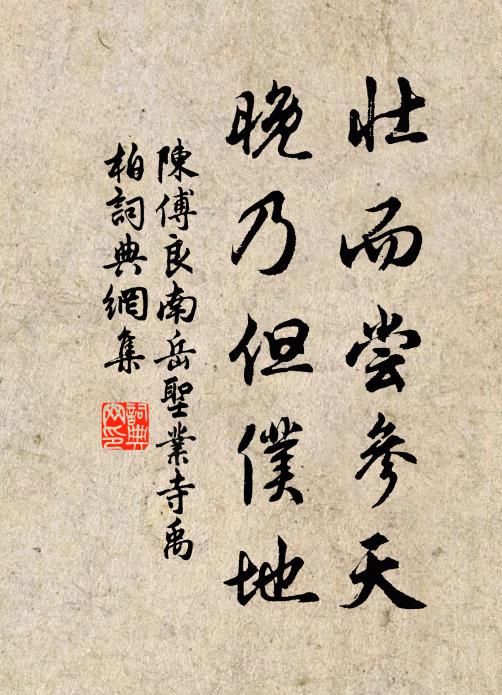 壮而尝参天
晚乃但僕地
陳傅良南岳聖業寺禹
柏詞典網集
詞典
网印